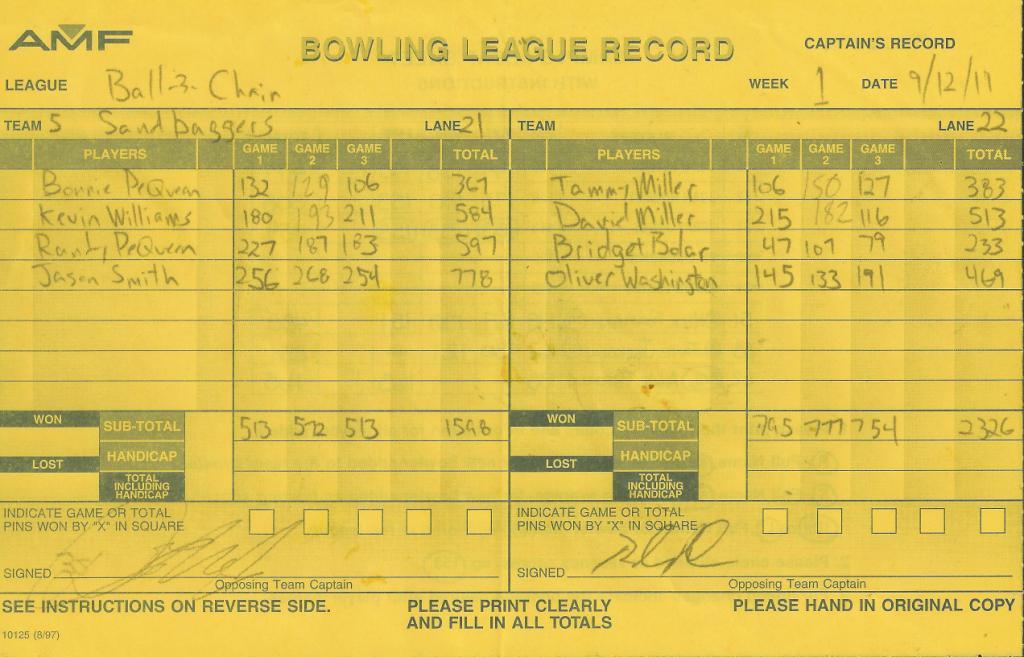 AMF
BOWLING LEAGUE RECORD
CAPTAIN'S RECORD
LEAGUE Ball-3- Chain WEEK 1 DATE 9/12/11
TEAM 5 Sandbaggers LANE 21 TEAM LANE 22
PLAYERS GAME 1 GAME 2 GAME 3 TOTAL PLAYERS GAME 1 GAME 2 GAME 3 TOTAL
Bonnie DeQueen 132 129 106 367 Tammy Miller 106 150 127 383
Kevin Williams 180 193 211 584 David Miller 215 182 116 513
Randy DeQueen 227 187 183 597 Bridget Bolar 47 107 79 233
Jason Smith 256 268 254 778 Oliver Washington 145 133 191 469
WON SUB-TOTAL 513 572 513 1598 WON SUB-TOTAL 795 777 754 2326
HANDICAP HANDICAP
LOST LOST
TOTAL INCLUDING HANDICAP TOTAL INCLUDING HANDICAP
INDICATE GAME OR TOTAL INDICATE GAME OR TOTAL
PINS WON BY "X" IN SQUARE PINS WON BY "X" IN SQUARE
SIGNED SIGNED
Opposing Team Captain Opposing Team Captain
SEE INSTRUCTIONS ON REVERSE SIDE. PLEASE PRINT CLEARLY PLEASE HAND IN ORIGINAL COPY
AND FILL IN ALL TOTALS
10125 (8/97)